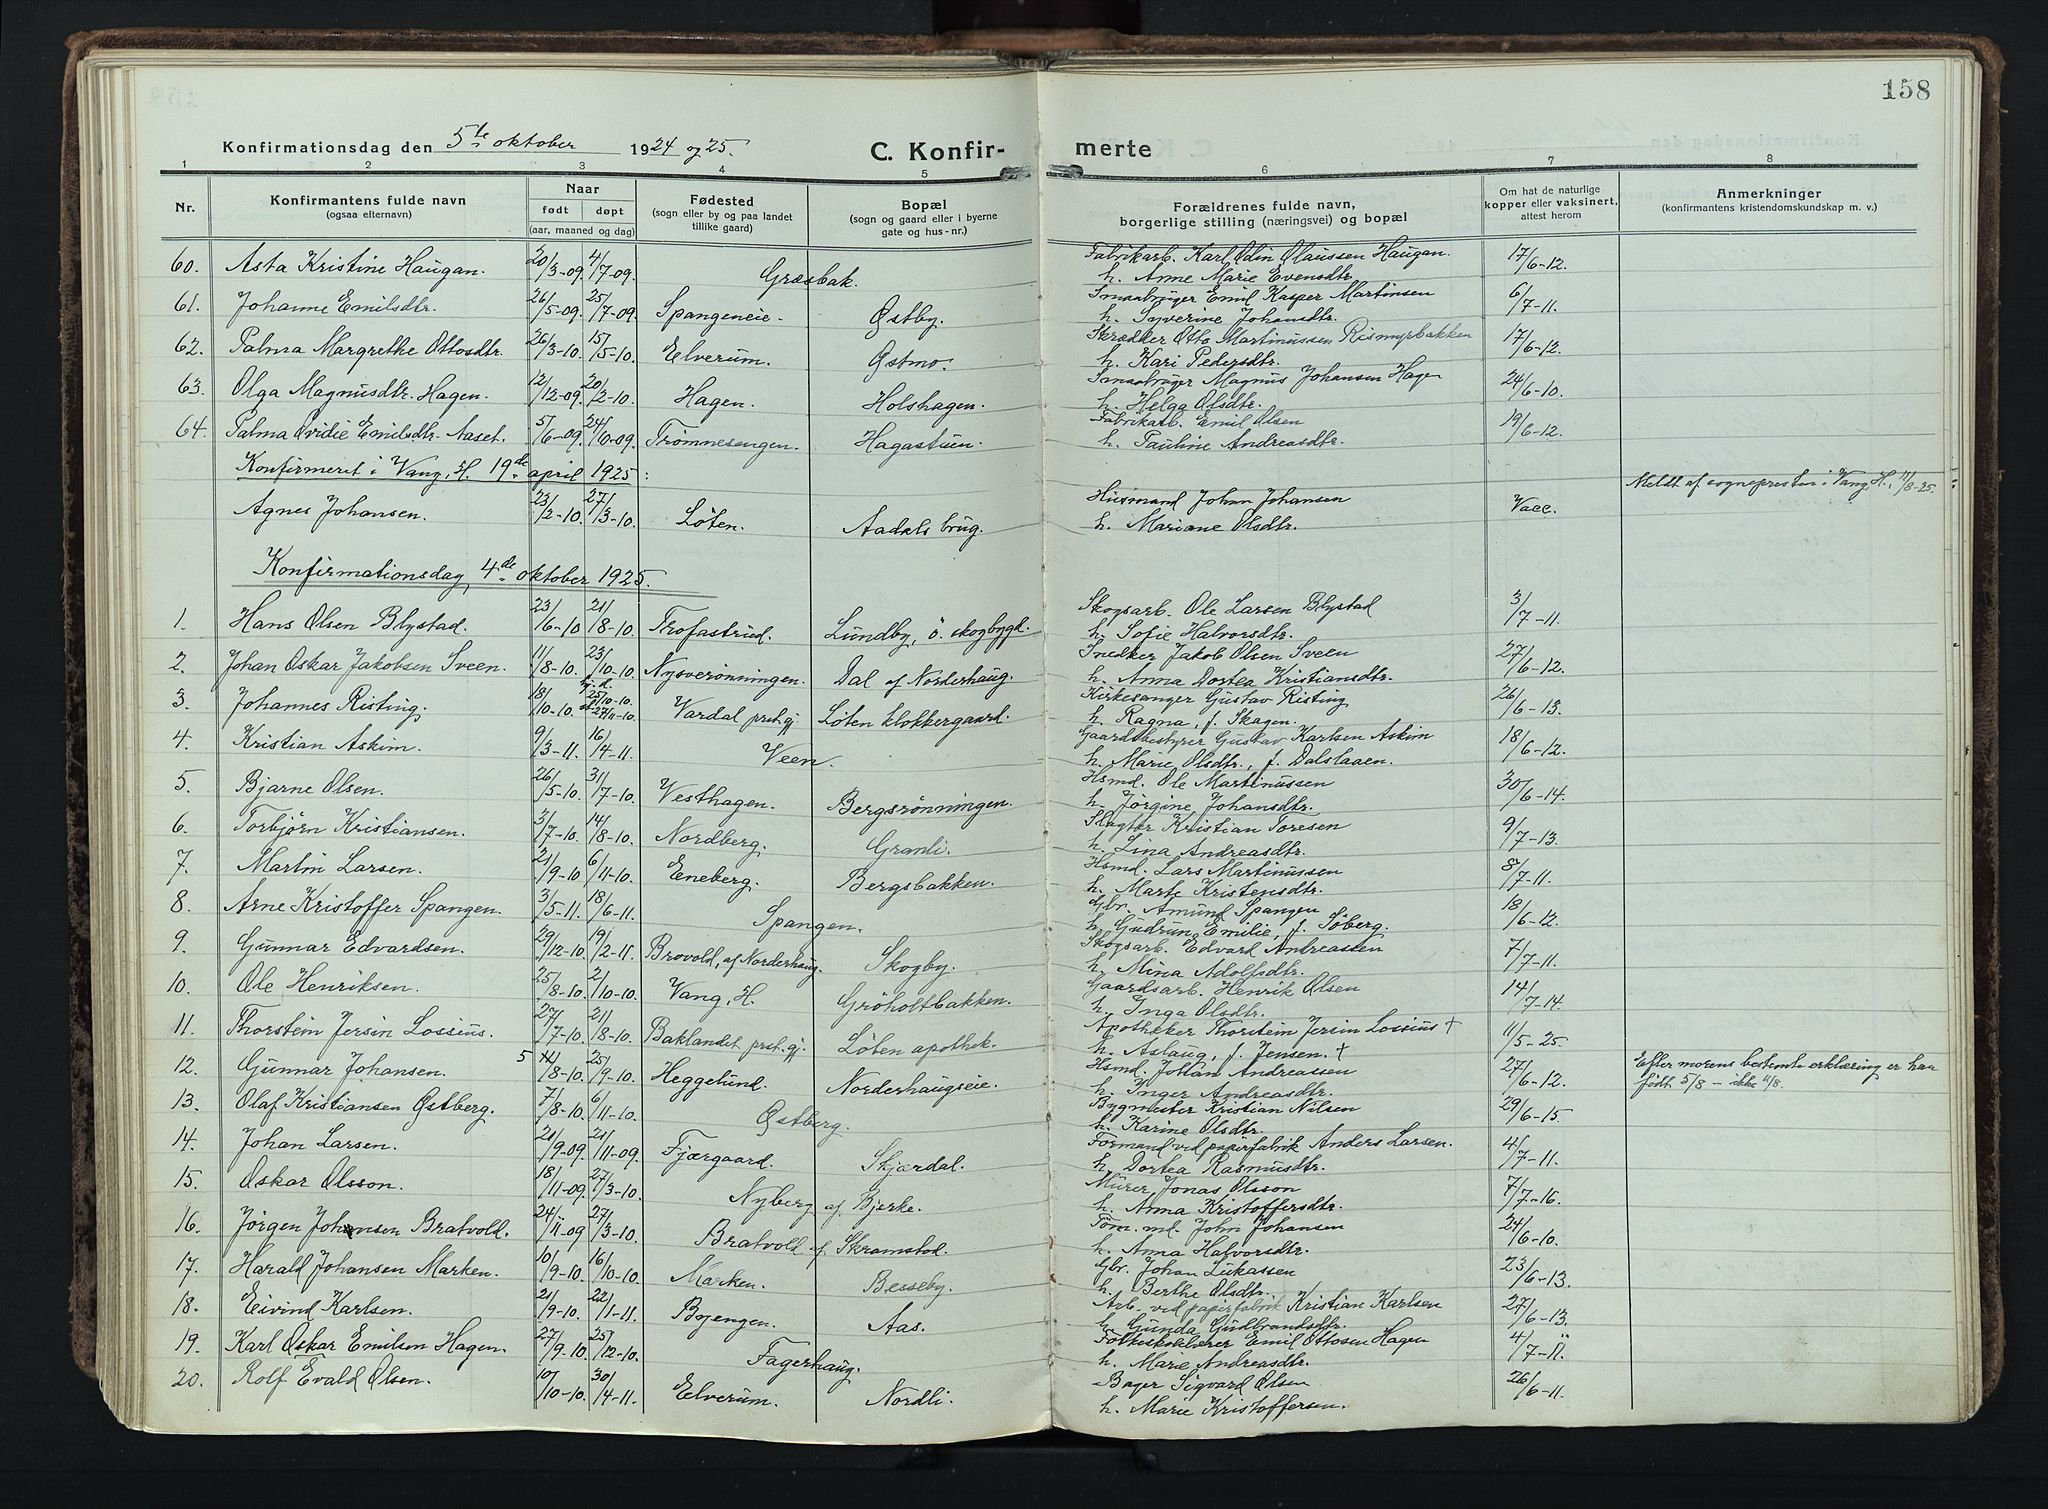 158
Konfirmationsdag den 5te oktober 1924 og 25.
C. Konfirmerte
1 2 3 4 5 6 7 8
Nr.
Konfirmantens fulde navn
(ogsaa efternavn)
Naar
født døpt
(aar, maaned og dag)
Fødested
(sogn eller by og paa landet
tillike gaard)
Bopæl
(sogn og gaard eller i byerne
gate og hus-nr.)
Forældrenes fulde navn,
borgerlige stilling (næringsvei) og bopæl
Om hat de naturlige
kopper eller vaksinert,
attest herom
Anmerkninger
(konfirmantens kristendomskundskap m. v.)
60. Asta Kristine Haugan. 20/3-09. 4/7-09. Græsbak. Fabrikarb. Karl Odin Olaussen Haugan. 17/6-12.
h. Anne Marie Evensdtr.
61. Johanne Emilsdtr. 26/5-09. 25/7-09. Spangeneie. Østby. Smaabruger Emil Kasper Martinsen 6/7-11.
h. Syverine Johansdtr.
62. Palma Margrethe Ottosdtr. 26/3-10. 15/5-10. Elverum. Østmo. Skrædder Otto Martinussen Rismyrbakken 17/6-12.
h. Kari Pedersdtr.
63. Olga Magnusdtr. Hagen. 12/12-09. 20/2-10. Hagen. Holshagen. Smaabruger Magnus Johansen Hagen 24/6-10.
h. Helga Olsdtr.
64. Palma Ovidie Emilsdtr. Aaset. 5/6-09. 24/10-09. Trømnesengen. Hagastuen. Fabrikarb. Emil Olsen 19/6-12.
h. Pauline Andreasdtr.
Konfirmeret i Vang, H. 19de april 1925: Meldt af sognepresten i Vang, H., 11/8-25.
Agnes Johansen. 23/2-10. 27/3-10. Løten. Aadals brug. Husmand Johan Johansen Vacc.
h. Mariane Olsdtr.
Konfirmationsdag, 4de oktober 1925.
1. Hans Olsen Blystad. 23/6-10 21/8-10. Trofastrud. Lundby, ö. skogbygd. Skogsarb. Ole Larsen Blystad 3/7-11.
h. Sofie Halvorsdtr.
2. Johan Oskar Jakobsen Sveen. 11/8-10. 23/10-10. Nysverønningen. Dal af Norderhaug. Snedker Jakob Olsen Sveen 27/6-12.
h. Anna Dortea Kristiansdtr.
3. Johannes Risting. 18/10-10. hj.d. 25/10-10. st. 27/11-10. Vardal prestgj. Løten klokkergaard. Kirkesanger Gustav Risting 26/6-13.
h. Ragna, f. Skagen.
4. Kristian Askim. 9/3-11. 16/4-11. Veen. Gaardsbestyrer Gustav Karlsen Askim 18/6-12.
h. Marie Olsdtr., f. Dalslaaen.
5. Bjarne Olsen. 26/5-10. 31/7-10. Vesthagen. Bergsrønningen. Hsmd. Ole Martinussen 30/6-14.
h. Jørgine Johansdtr.
6. Torbjørn Kristiansen. 3/7-10. 14/8-10. Nordberg. Granli. Slagter Kristian Toresen 9/7-13.
h. Lina Andreasdtr.
7. Martin Larsen. 21/9-10 6/11-10. Eneberg. Bergsbakken. Hsmd. Lars Martinussen 8/7-11.
h. Marte Kristensdtr.
8. Arne Kristoffer Spangen. 3/5-11. 18/6-11. Spangen. Gbr. Amund Spangen 18/6-12.
h. Gudrun Emilie, f. Søberg.
9. Gunnar Edvardsen. 29/12-10. 19/2-11. Brovold, af Norderhaug. Skogby. Skogsarb. Edvard Andreassen 7/7-11.
h. Mina Adolfsdtr.
10. Ole Henriksen. 25/8-10. 2/10-10. Vang, H. Grøholtbakken. Gaardsarb. Henrik Olsen 14/7-14.
h. Inga Olsdtr.
11. Thorstein Jersin Lossius. 27/7-10. 21/8-10. Baklandet prst.gj. Løten apothek. Apotheker Thorstein Jersin Lossius † 11/5-25.
h. Aslaug, f. Jensen. †
12. Gunnar Johansen. 5 11/8-10. 25/9-10. Heggelund. Norderhaugseie. Hsmd. Johan Andreassen 27/6-12. Efter morens bestemte erklæring er han
h. Inger Andreasdtr. født 5/8 - ikke 11/8.
13. Olaf Kristiansen Østberg. 7/8-10. 6/11-10. Østberg. Bygmester Kristian Nilsen 29/6-15.
h. Karine Olsdtr.
14. Johan Larsen. 21/9-09. 21/11-09. Fjærgaard. Skjærdal. Formand ved papirfabrik Anders Larsen. 4/7-11.
h. Dortea Rasmusdtr.
15. Oskar Olsson. 18/11-09. 27/3-10. Nyberg af Bjerke. Murer Jonas Olsson 7/7-16.
h. Anna Kristoffersdtr.
16. Jørgen Johansen Bratvold. 24/11-09 27/3-10. Bratvold af Skramstad. Tøm. md. John Johansen 24/6-10.
h. Anna Halvorsdtr.
17. Harald Johansen Marken. 10/9-10. 16/10-10. Marken. Besseby. Gbr. Johan Lukassen 23/6-13.
h. Berthe Olsdtr.
18. Eivind Karlsen. 21/9-10. 22/1-11. Byengen. Aas. Arb. ved papirfabrik Kristian Karlsen 27/6-13.
h. Gunda Gudbrandsdtr.
19. Karl Oskar Emilsen Hagen. 27/9-10. 25/12-10. Fagerhaug. Folkeskolelærer Emil Ottosen Hagen 4/7-11.
h. Marie Andreasdtr.
20. Rolf Evald Olsen. 10/10-10. 30/4-11. Elverum. Nordli. Bager Sigvard Olsen 26/6-11.
h. Marie Kristoffersen.